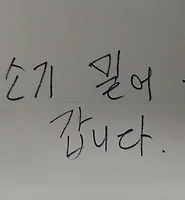 소기 밀어
갑니다.